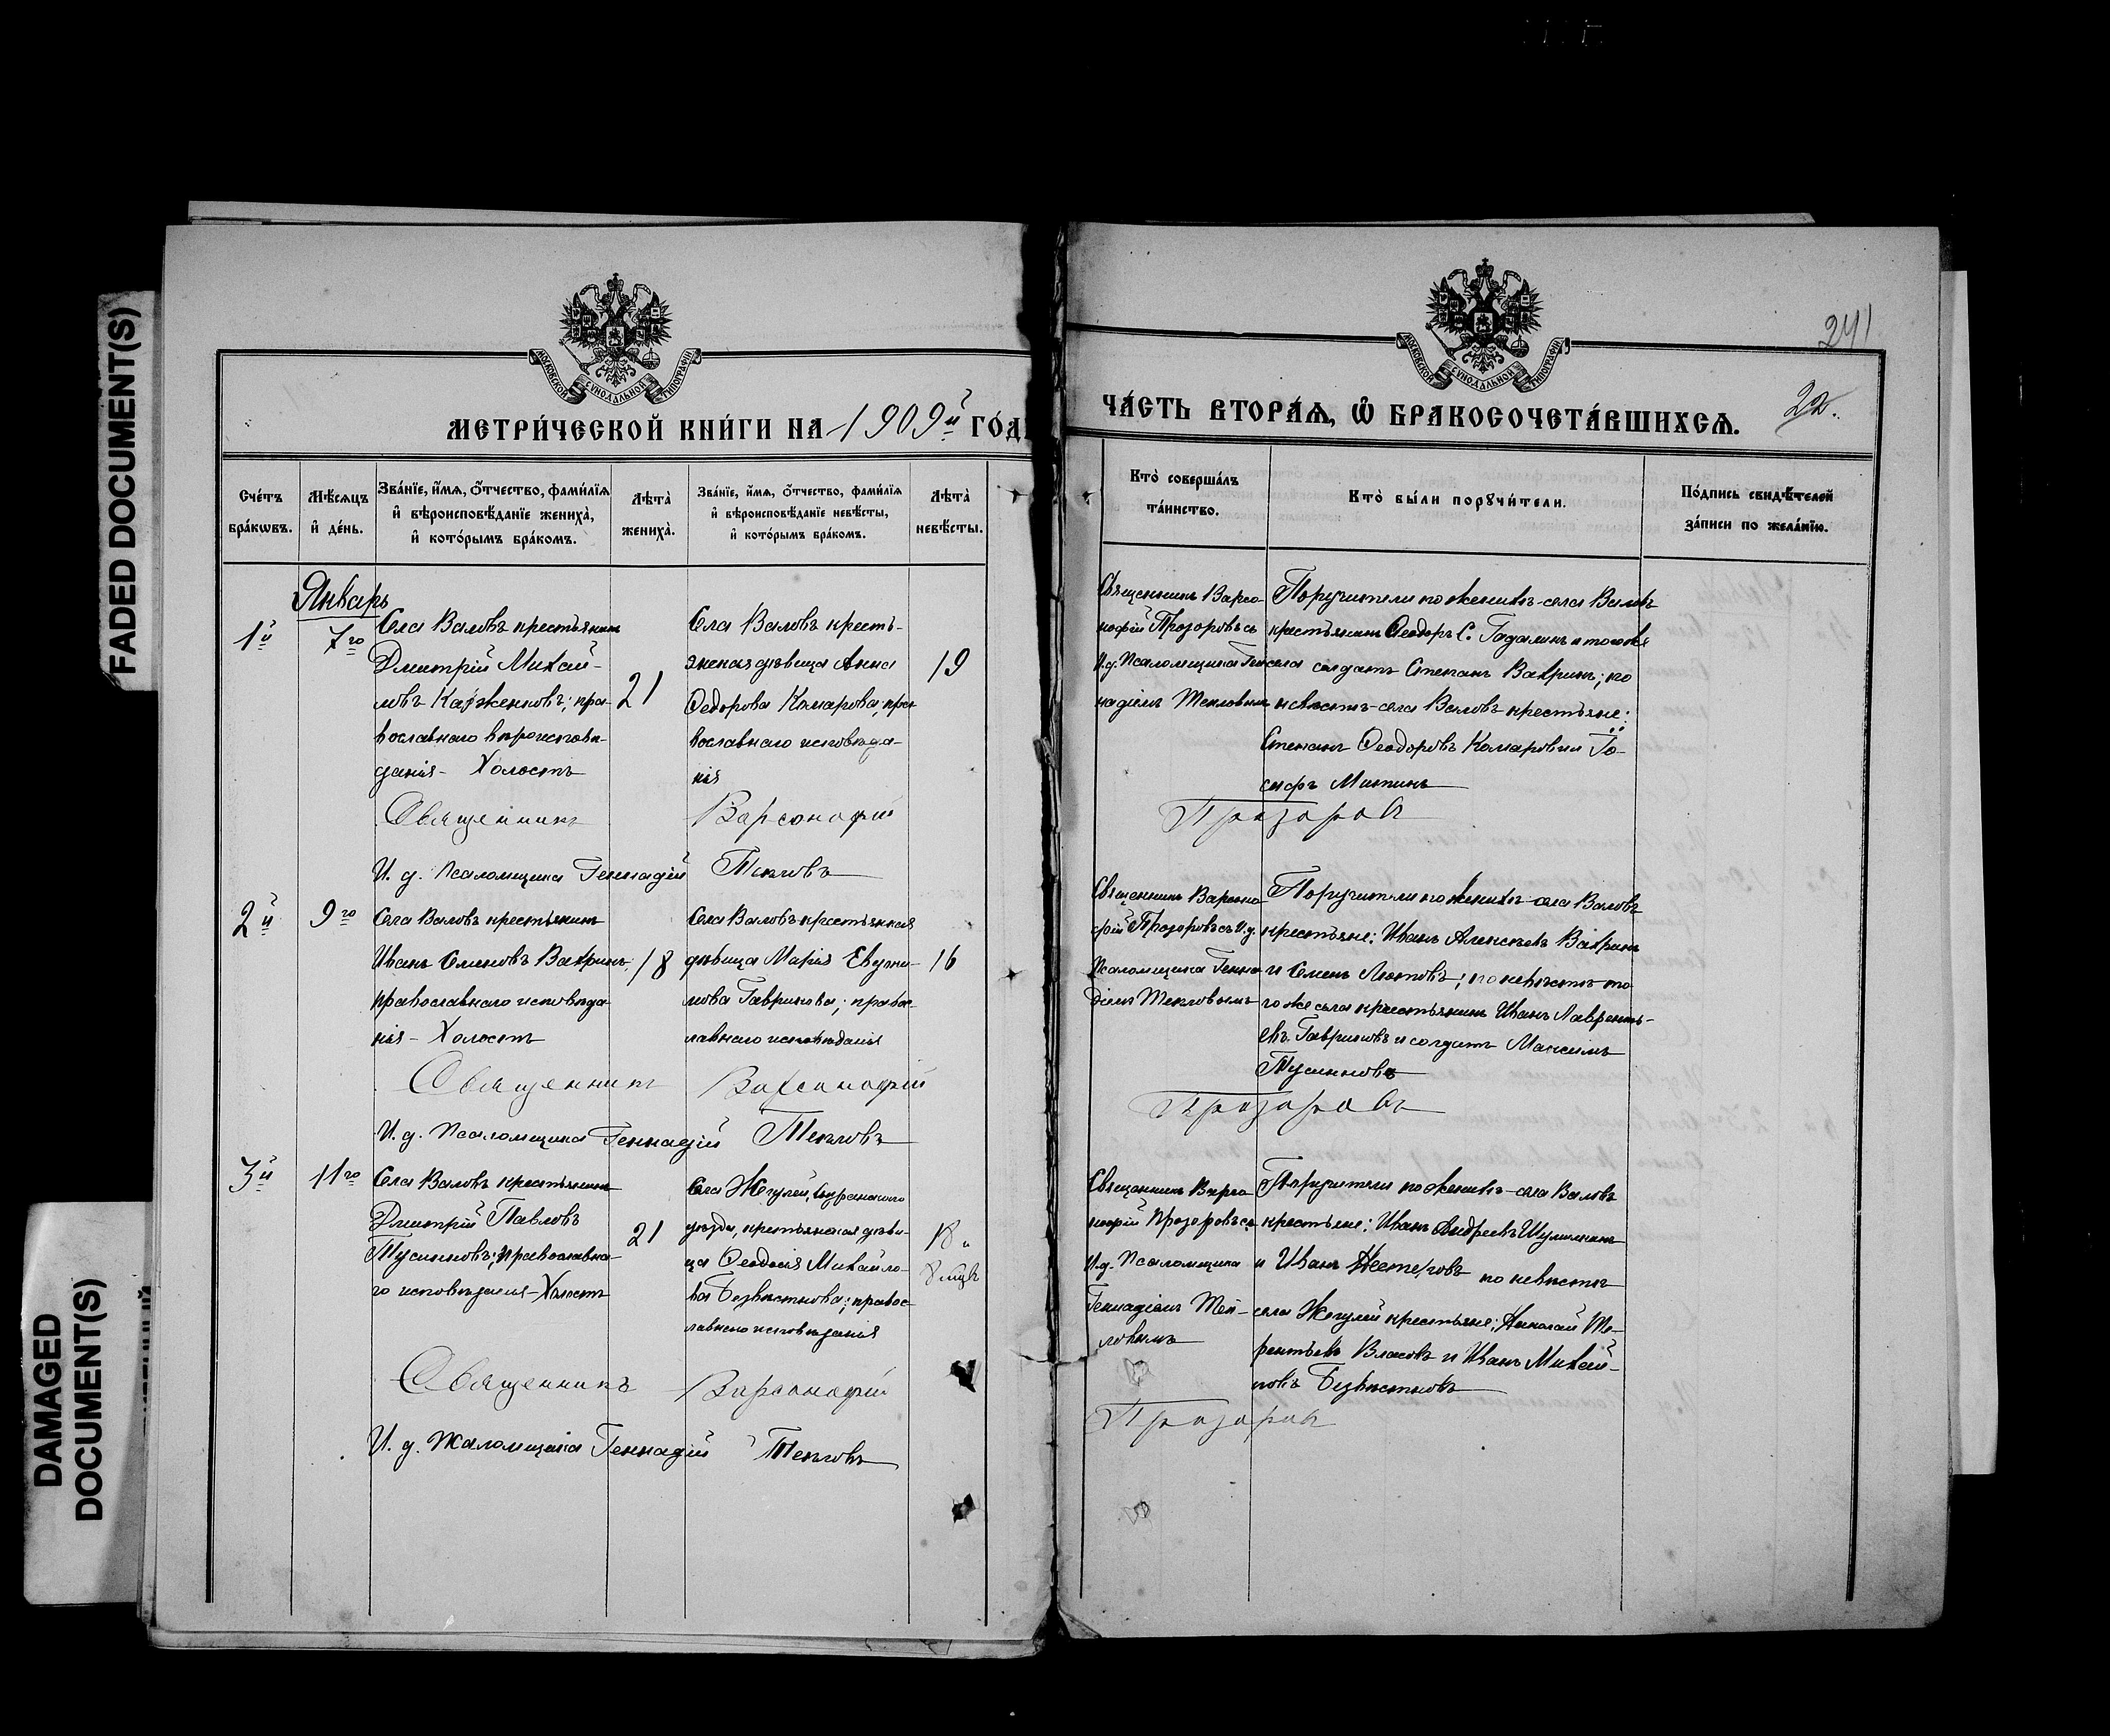 FADED DOCUMENT(S)
DAMAGED
DOCUMENT(S)
МОСКОВСКОЙ СѴНОДАЛЬНОЙ ТИПОГРАФІИ
МЕТРИ́ЧЕСКОЙ КНИ́ГИ НА 1909й ГО́ДЪ
Сче́тъ
бра́кѡвъ.
Мѣ́сяцъ
и҆ де́нь.
Зва́нїе, и҆́мѧ, ѻ҆́тчество, фами́лїѧ
и҆ вѣроисповѣ́данїе жениха̀,
и҆ кото́рымъ бра́комъ.
Лѣ́та̀
жениха̀.
Зва́нїе, и҆́мѧ, ѻ҆́тчество, фами́лїѧ
и҆ вѣроисповѣ́данїе невѣ́сты,
и҆ кото́рымъ бра́комъ.
Лѣ́та̀
невѣ́сты.
Январь
1й
7го
Села Валовъ крестьянинъ
Дмитрій Михай-
ловъ ; пра-
вославнаго вѣроисповѣ-
данія - Холостъ
21
Села Валовъ кресть-
янская дѣвица Анна
Ѳедорова Комарова; пра-
вославнаго исповѣда-
нія
19
Священникъ Варсонофій
И. д. Псаломщика Геннадій Тепловъ
2й
9го
Села Валовъ крестьянинъ
Иванъ Семеновъ Вахринъ;
православнаго исповѣда-
нія - Холостъ
18
Села Валовъ крестьянская
дѣвица Марія Евѳими-
мова Гаврилова; правос-
лавнаго исповѣданія
16
Священникъ Варсонофій
И. д. Псаломщика Геннадій Тепловъ
3й
11го
Села Валовъ крестьянинъ
Дмитрій Павловъ
Тусинковъ; православна-
го исповѣданія - Холостъ
21
Села Жегулей, Сызранскаго
уѣзда, крестьянская дѣви-
ца Ѳеодосія Михайло-
ва Безвѣстнова; правос-
лавнаго исповѣданія
18 и
8 мцвъ
Священникъ Варсонофій
И. д. Псаломщика Геннадій Тепловъ
241
МОСКОВСКОЙ СѴНОДАЛЬНОЙ ТИПОГРАФІИ
ЧА́СТЬ ВТОРА́Ѧ, Ѽ БРАКОСОЧЕТА́ВШИХСѦ.
22.
Кто̀ соверша́лъ
та́инство.
Кто̀ бы́ли порꙋчи́тели.
По́дпись свидѣ́телей
за́писи по жела́нїю.
Священникъ Варсо-
нофій Прозоровъ съ
И.д. Псаломщика Ген-
надіемъ Тепловымъ
Поручители по женихѣ - села Валовъ
крестьянинъ Ѳеодоръ С. Гадалинъ и того же
села солдатъ Степанъ Вахринъ; по
невѣстѣ - села Валовъ крестьяне:
Степанъ Ѳеодоровъ Комаровъ и Іо-
сифъ Митинъ
Прозоровъ
Священникъ Варсоно-
фій Прозоровъ съ И.д.
Псаломщика Генна-
діемъ Тепловымъ
Поручители по женихѣ - села Валовъ
крестьяне: Иванъ Алексѣевъ Вахринъ
и Семенъ Лютовъ; по невѣстѣ то-
го же села крестьянинъ Иванъ Лаврентъ-
евъ Гавриловъ и солдатъ Максимъ
Тусинковъ
Прозоровъ
Священникъ Варсо-
нофій Прозоровъ съ
И.д. Псаломщика
Геннадіемъ Теп-
ловымъ
Поручители по женихѣ - села Валовъ
крестьяне: Иванъ Андреевъ Шумилкинъ
и Иванъ Нестеровъ по невѣстѣ
села Жегулей крестьяне: Николай Те-
рентьевъ Власовъ и Иванъ Михай-
ловъ Безвѣстновъ
Прозоровъ